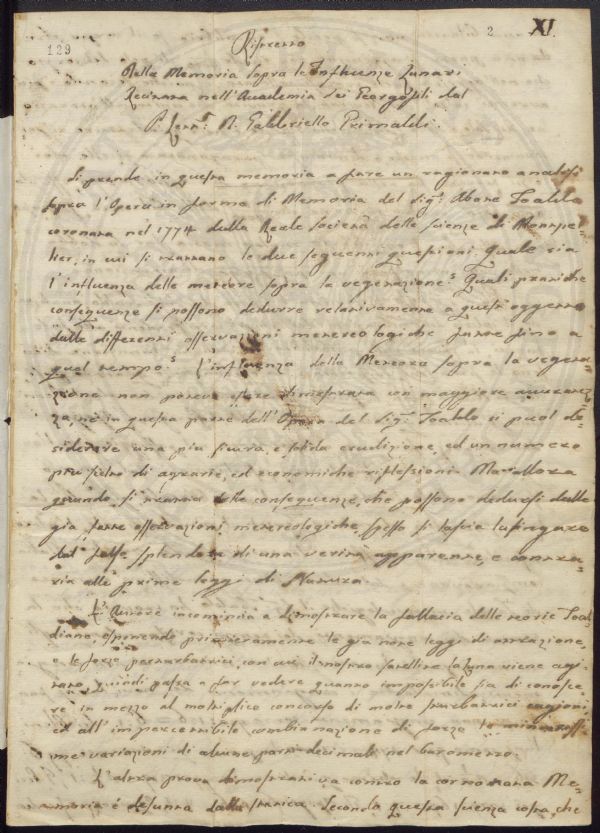 129
2 XI.
Ristretto
Della Memoria sopra le Influenze Lunari
Recitata nell'Accademia dei Georgofili dal
P. Lett.e R. Gabbriello Grimaldi.
Si prende in questa memoria a fare un ragionato analisi
sopra l'Opera in forma di Memoria del Sig.r Abate Toaldo
coronata nel 1774 dalla Reale società delle scienze di Monpel-
lier, in cui si trattano le due seguenti questioni. Quale sia
l'influenza delle meteore sopra la vegetazione? Quali pratiche
conseguenze si possono dedurre relativamente a questo oggetto
dalle differenti osservazioni metereologiche fatte fino a
quel tempo? L'influenza della Meteora sopra la vegeta-
zione non poteva essere dimostrata con maggiore accuratez-
za, nè in questa parte dell'Opera del Sig.r Toaldo si puol de-
siderare una più sicura, e solida erudizione, ed un numero
più di agrarie, ed economiche riflessioni. Ma allora
quando si tratta delle conseguenze, che possono dedursi dalle
già fatte osservazioni metereologiche, spesso si lascia lusingare
dal falso splendore di una verità apparente, e contra-
ria alle prime leggi di Natura.
L'Autore incomincia a dimostrare la fallacia delle teorie Toal-
diane, esponendo primieramente le già note leggi di attrazione,
e le forze perturbatrici, con cui il nostro satellite la Luna viene agi-
tato, quindi passa a far vedere quanto impossibile sia di conosce-
re in mezzo al moltiplice concorso di molte turbatrici cagioni,
ed all'impercettibile combinazione di forze le minutissi-
me variazioni di alcune parti decimali nel barometro.
L'altra prova dimostrativa contro la coronata Me-
moria é desunta dalla statica. Secondo questa scienza costa, che